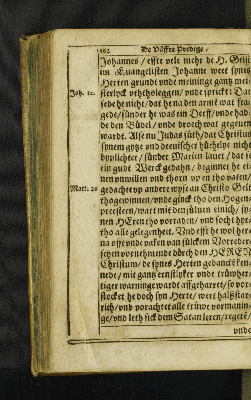 162 De Vöffte Predige /
Johannes / effte vele mehr de H. Geist
im Euangelisten Johanne weet synes
Herten grundt vnde meininge gantz mei-
sterlyck vththoleggen / vnde sprickt: Dat
Joh. 12. sede he nicht / dat he na den armē wat fra-
gede / sünder he was ein Deeff / vnde had-
de den Büdel / vnde droech wat gegeuen
wardt. Alse nu Judas süth / dat Christus
synem gytze vnd
byplichtet / sünder Marien lauet / dat se
ein gudt Werck gedahn / beginnet he ei-
nen vnwillen vnd thorn vp en tho vaten /
Matt. 26 gedachte vp andere wyse an Christo Geld
thogewinnen / vnde ginck tho den Hogen-
preestern / wart mit den süluen einich / sy-
nen HEren tho vorraden / vnd socht hyr-
tho alle gelegenheit. Vnd efft he wol her-
na offt vnde vaken van sülckem Vorrede-
schen vornehmende dörch den HEREN
Christum / de synes Herten gedancken ken-
nede / mit gantz ernstlyker vnde trüwher-
tiger warninge wardt affgharret / so vor-
stocket he doch syn Herte / wert halßstar-
rich / vnd vorachtet alle trüwe vormanin-
ge / vnd leth sick dem Satan leren / regerē /
vnde